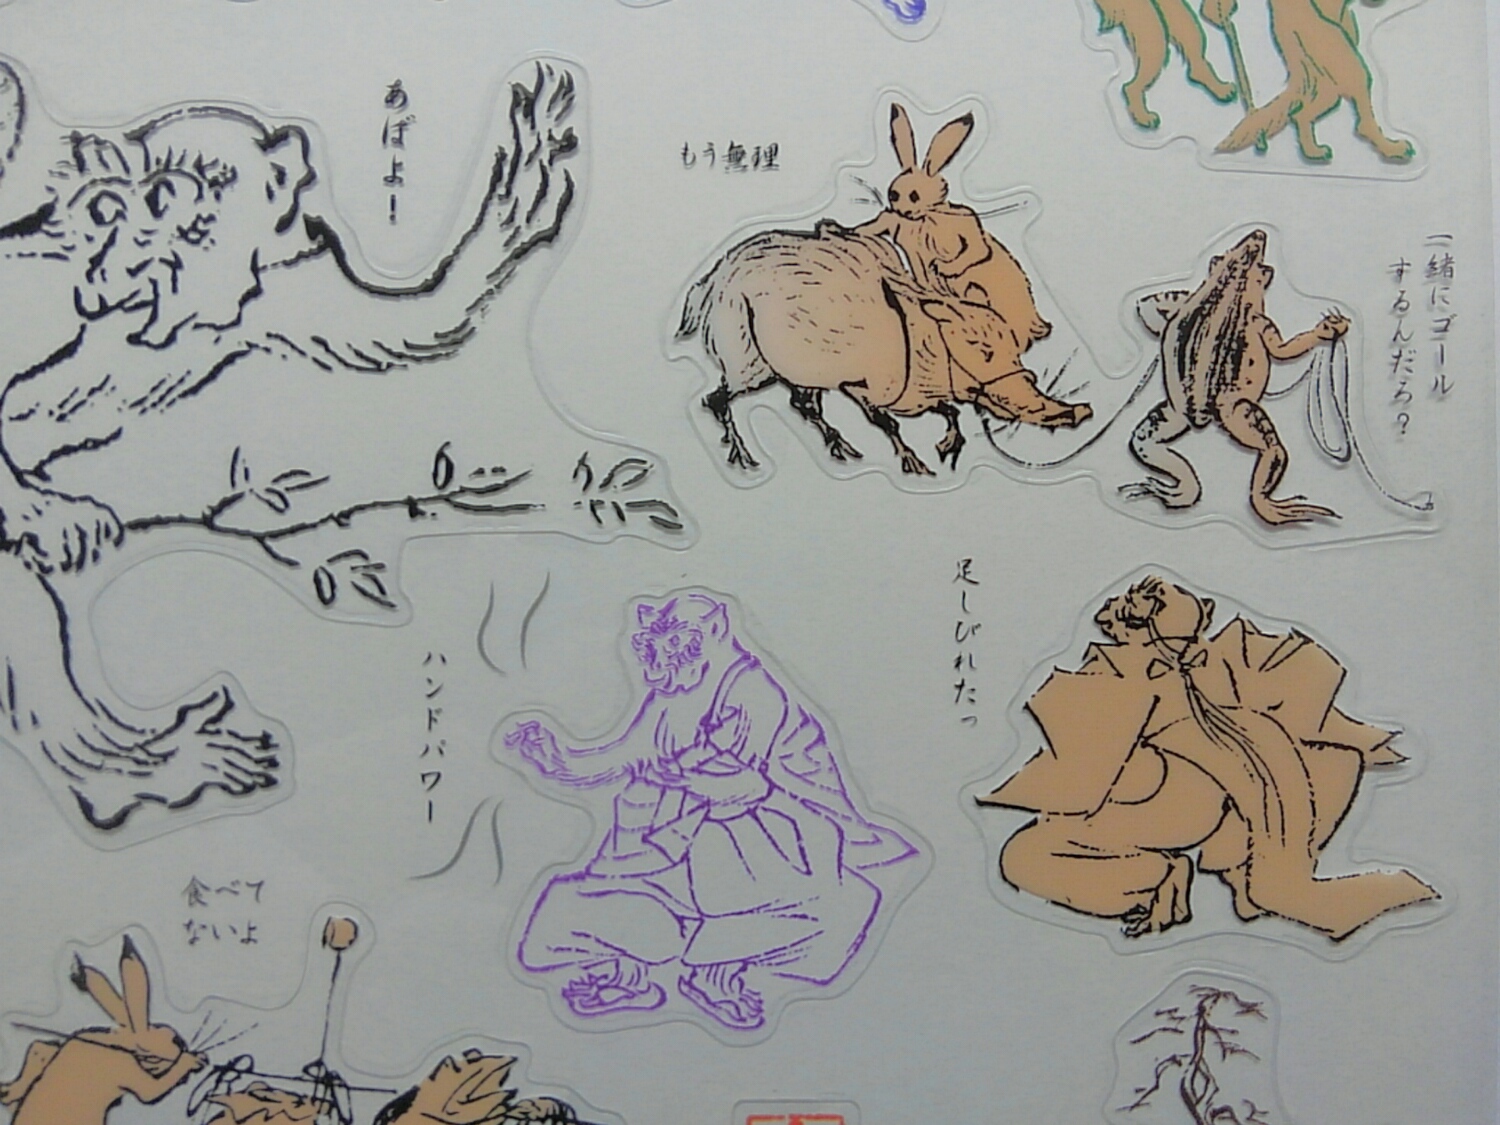 あばよ！
もう無理
一緒にゴール
するんだろ？
足しびれたっ
ハンドパワー
食べて
ないよ